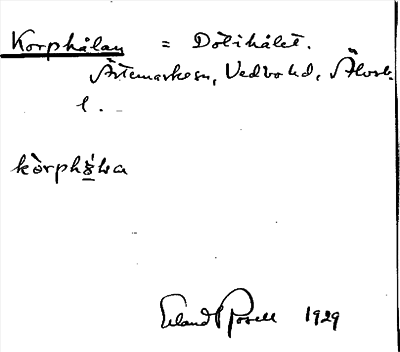 Korphålan = Dötihålet.
Ärtemarken, Vedbo hd, Älvsb.
l.
kòrphå̀la
Erland Rosell 1929